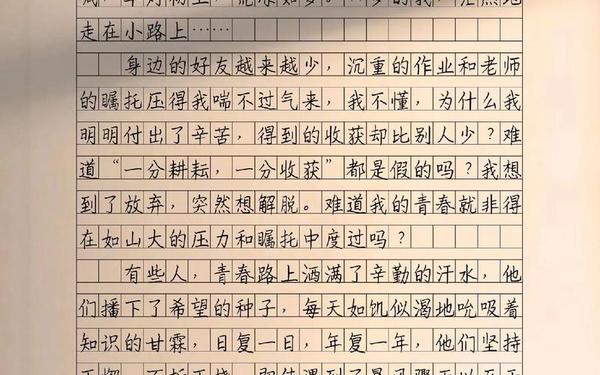 走在小路上……
身边的好友越来越少，沉重的作业和老师
的瞩托压得我喘不过气来，我不懂，为什么我
明明付出了辛苦，得到的收获却比别人少？难
道“一分耕耘，一分收获”都是假的吗？我想
到了放弃，突然想解脱。难道我的青春就非得
在如山大的压力和瞩托中度过吗？
有些人，青春路上洒满了辛勤的汗水，他
们播下了希望的种子，每天如饥似渴地吮吸着
知识的甘霖，日复一日，年复一年，他们坚持